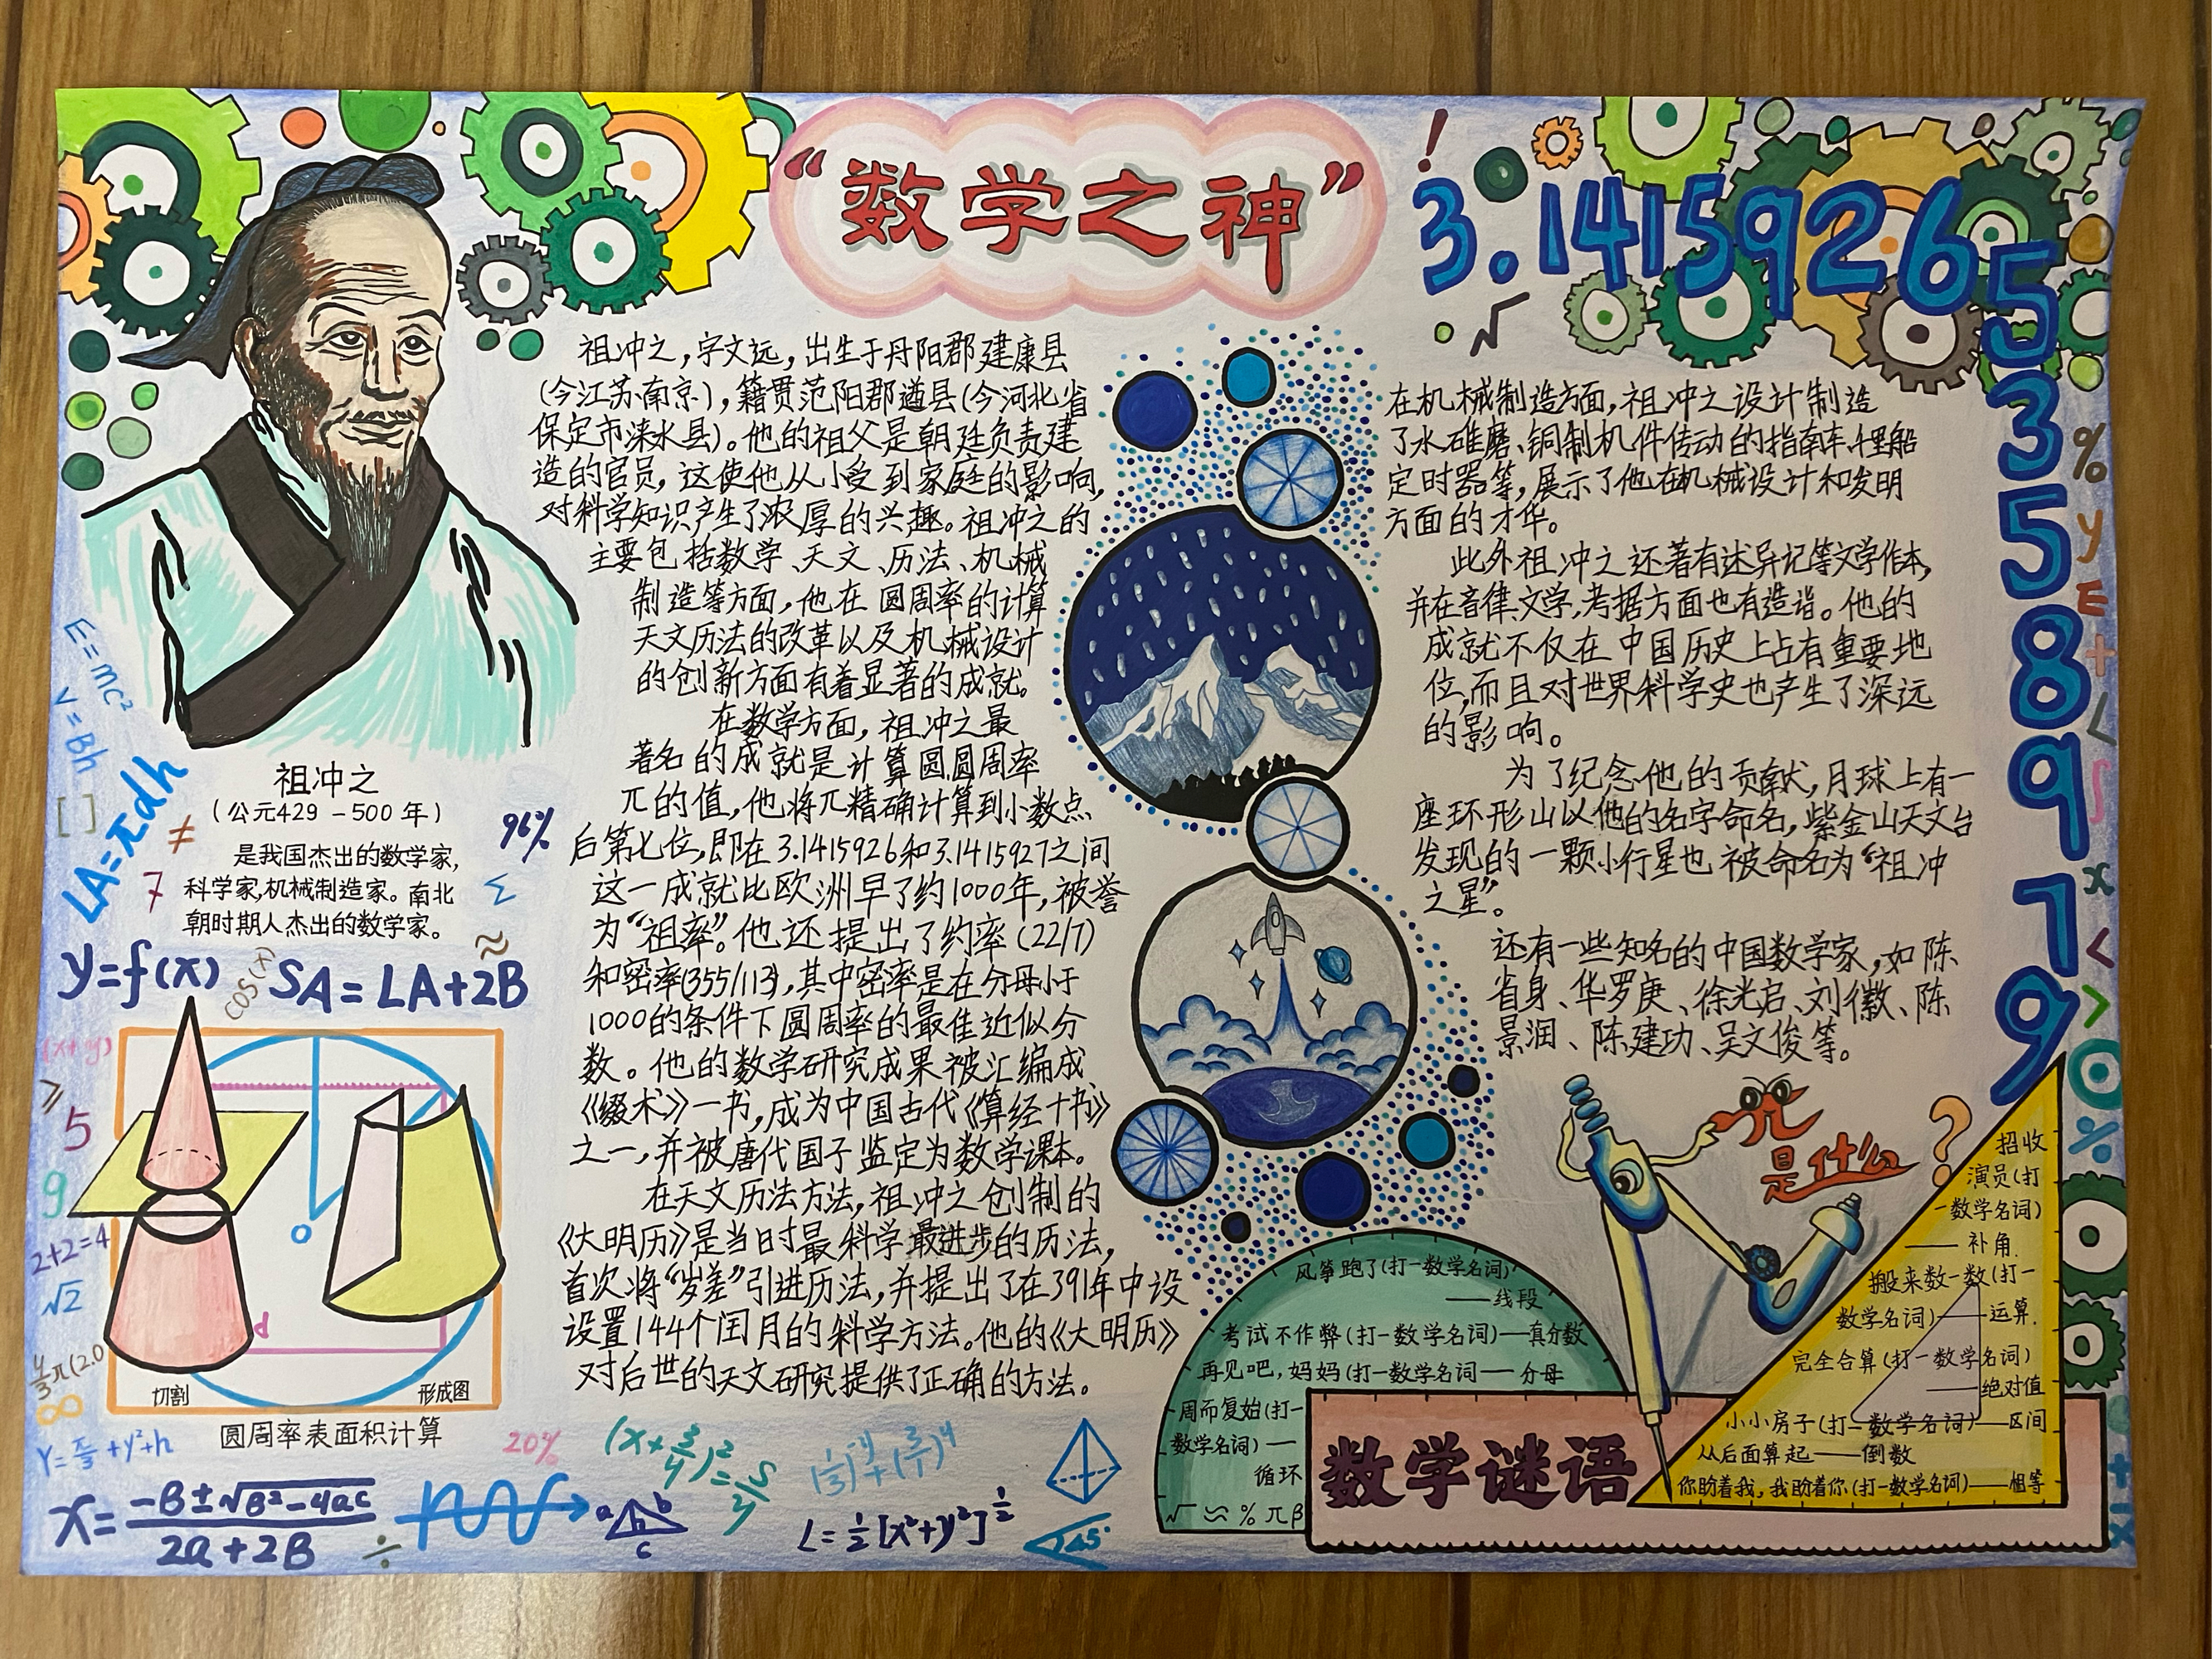 “数学之神”
3.14159265358979
祖冲之
(公元429-500年)
是我国杰出的数学家,
科学家,机械制造家。南北
朝时期人杰出的数学家。
祖冲之,字文远,出生于丹阳郡建康县
(今江苏南京),籍贯范阳郡遒县(今河北省
保定市涞水县)。他的祖父是朝廷负责建
造的官员,这使他从小受到家庭的影响,
对科学知识产生了浓厚的兴趣。祖冲之的
主要包括数学、天文、历法、机械
制造等方面,他在圆周率的计算
天文历法的改革以及机械设计
的创新方面有着显著的成就。
在数学方面,祖冲之最
著名的成就是计算圆圆周率
π的值,他将π精确计算到小数点
后第七位,即在3.1415926和3.1415927之间
这一成就比欧洲早了约1000年,被誉
为“祖率”。他还提出了约率(22/7)
和密率(355/113),其中密率是在分母小于
1000的条件下圆周率的最佳近似分
数。他的数学研究成果被汇编成
《缀术》一书,成为中国古代《算经十书》
之一,并被唐代国子监定为数学课本。
在天文历法方法,祖冲之创制的
《大明历》是当时最科学最进步的历法,
首次将“岁差”引进历法,并提出了在391年中设
设置144个闰月的科学方法。他的《大明历》
对后世的天文研究提供了正确的方法。
在机械制造方面,祖冲之设计制造
了水碓磨、铜制机件传动的指南车、千里船
定时器等,展示了他在机械设计和发明
方面的才华。
此外祖冲之还著有述异记等文学作本,
并在音律、文学,考据方面也有造诣。他的
成就不仅在中国历史上占有重要地
位,而且对世界科学史也产生了深远
的影响。
为了纪念他的贡献,月球上有一
座环形山以他的名字命名,紫金山天文台
发现的一颗小行星也被命名为“祖冲
之星”。
还有一些知名的中国数学家,如陈
省身、华罗庚、徐光启、刘徽、陈
景润、陈建功、吴文俊等。
π是什么?
E=mc²
V=Bh
LA=πdh
[ ]
≠
7
96%
Σ
≈
y=f(x)
cos(x)
SA=LA+2B
(x+y)
≥
5
9
2+2=4
√2
∞
o
d
切割
形成图
圆周率表面积计算
20%
x=(-B±√B²-4ac)/(2a+2B)
÷
a b
h
c
L=½[x²+y²]^½
45°
风筝跑了(打一数学名词)
——线段
考试不作弊(打一数学名词)——真分数
再见吧,妈妈(打一数学名词——分母
周而复始(打一
数学名词)——
循环
√ ≈ % π β
数学谜语
招收
演员(打
一数学名词)
——补角.
搬来数一数(打一
数学名词)——运算.
完全合算(打一数学名词)
——绝对值
小小房子(打一数学名词)——区间
从后面算起——倒数
你盼着我,我盼着你(打一数学名词)——相等